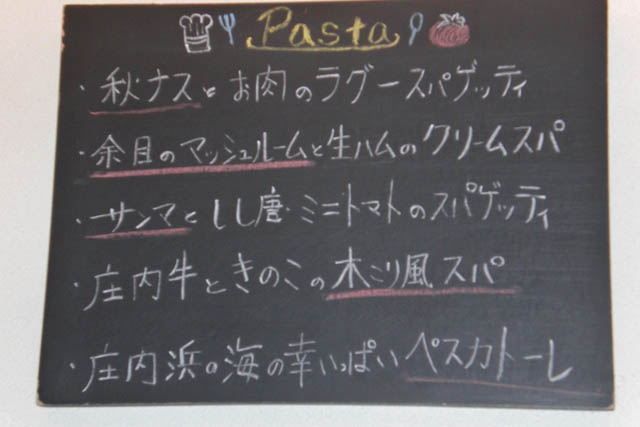 Pasta
・秋ナスとお肉のラグースパゲッティ
・余目のマッシュルームと生ハムのクリームスパ
・サンマとしし唐・ミニトマトのスパゲッティ
・庄内牛ときのこの木こり風スパ
・庄内浜の海の幸いっぱいペスカトーレ